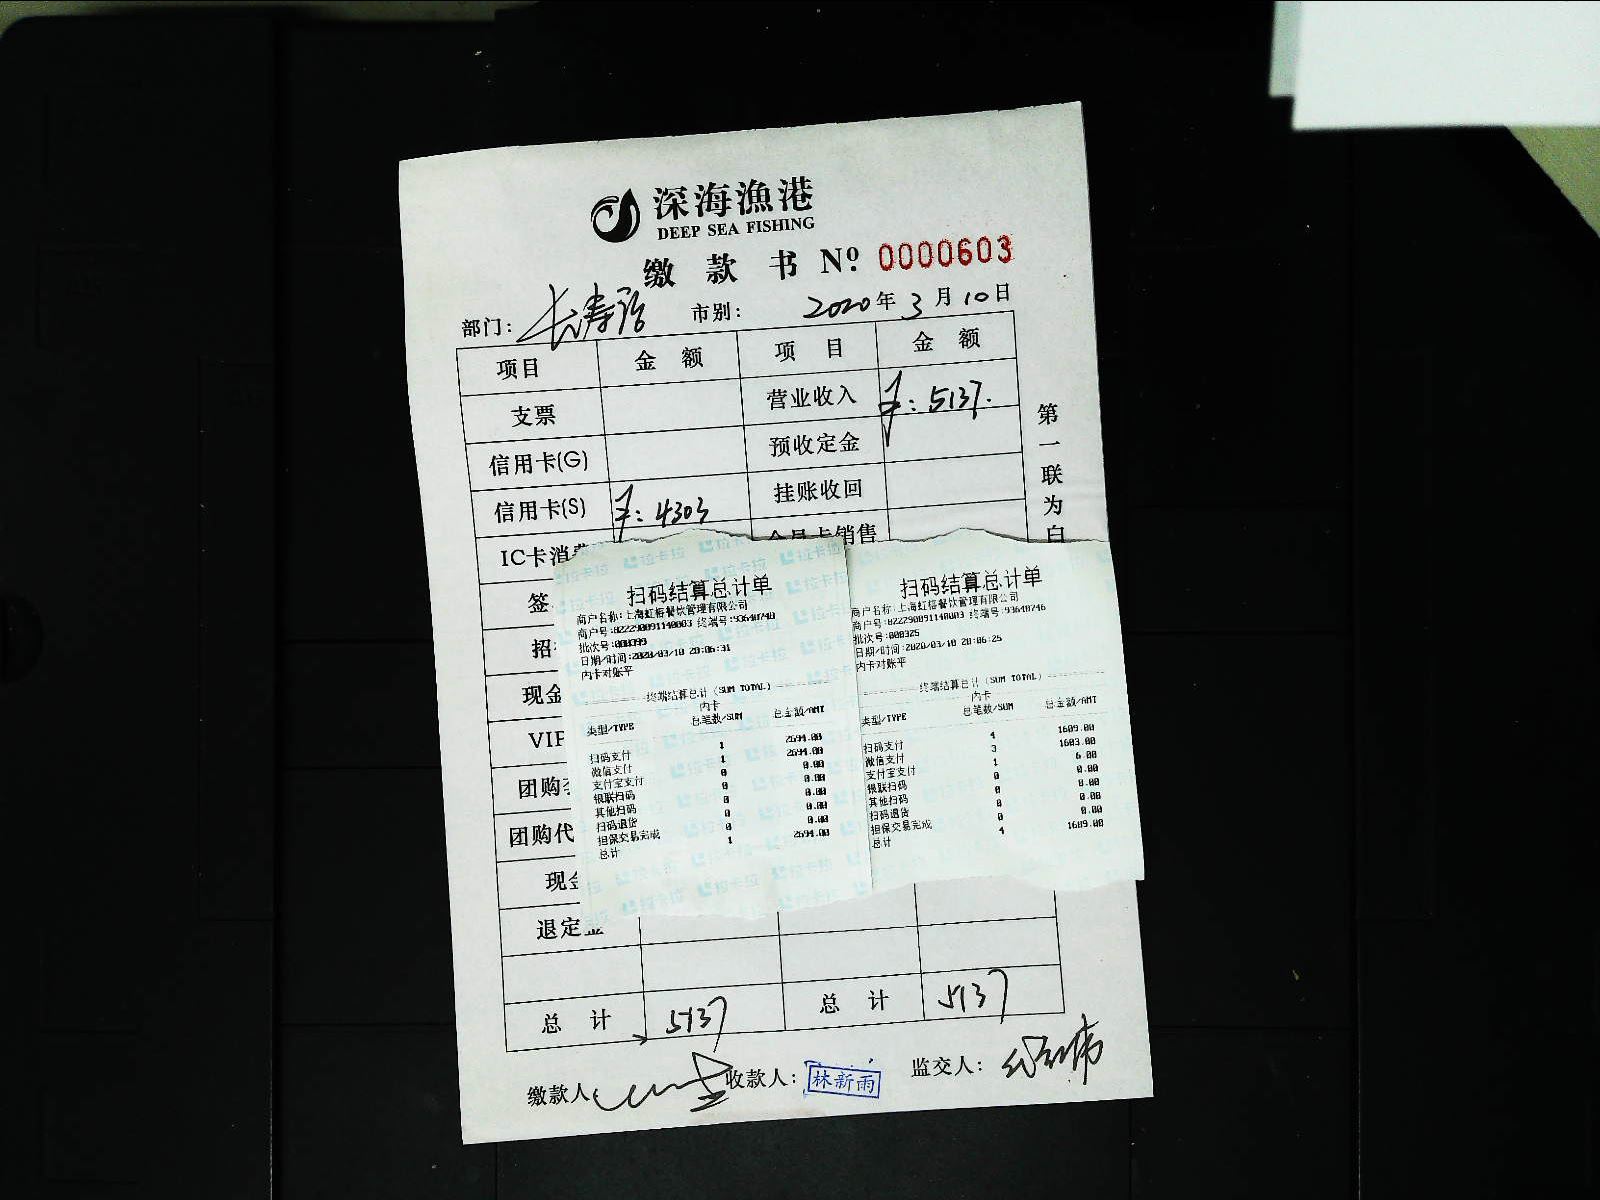 深海漁港
DEEP SEA FISHING
缴款书 Nº 0000603
部门: 长寿路 市别: 2020年3月10日
项目 金额 项目 金额
支票 营业收入 ¥: 5137.
信用卡(G) 预收定金
信用卡(S) ¥: 4303 挂账收回
IC卡消 销售
签
招
现金
VIP
团购
团购代
现金
退定金
总计 5137 总计 5137
缴款人 收款人: 林新雨 监交人:
第一联为白
扫码结算总计单
商户名称:上海虹榕餐饮管理有限公司
商户号:822290091140003 终端号:93640740
批次号:000399
日期/时间:2020/03/10 20:06:31
内卡对账平
终端结算总计 (SUM TOTAL)
内卡
类型/TYPE 总笔数/SUM 总金额/AMT
扫码支付 1 2694.00
微信支付 1 2694.00
支付宝支付 0 0.00
银联扫码 0 0.00
其他扫码 0 0.00
扫码退货 0 0.00
担保交易完成 0 0.00
总计 1 2694.00
扫码结算总计单
商户名称:上海虹榕餐饮管理有限公司
商户号:822290091140003 终端号:93640746
批次号:000325
日期/时间:2020/03/10 20:06:25
内卡对账平
终端结算总计 (SUM TOTAL)
内卡
类型/TYPE 总笔数/SUM 总金额/AMT
扫码支付 4 1609.00
微信支付 3 1603.00
支付宝支付 1 6.00
银联扫码 0 0.00
其他扫码 0 0.00
扫码退货 0 0.00
担保交易完成 0 0.00
总计 4 1609.00